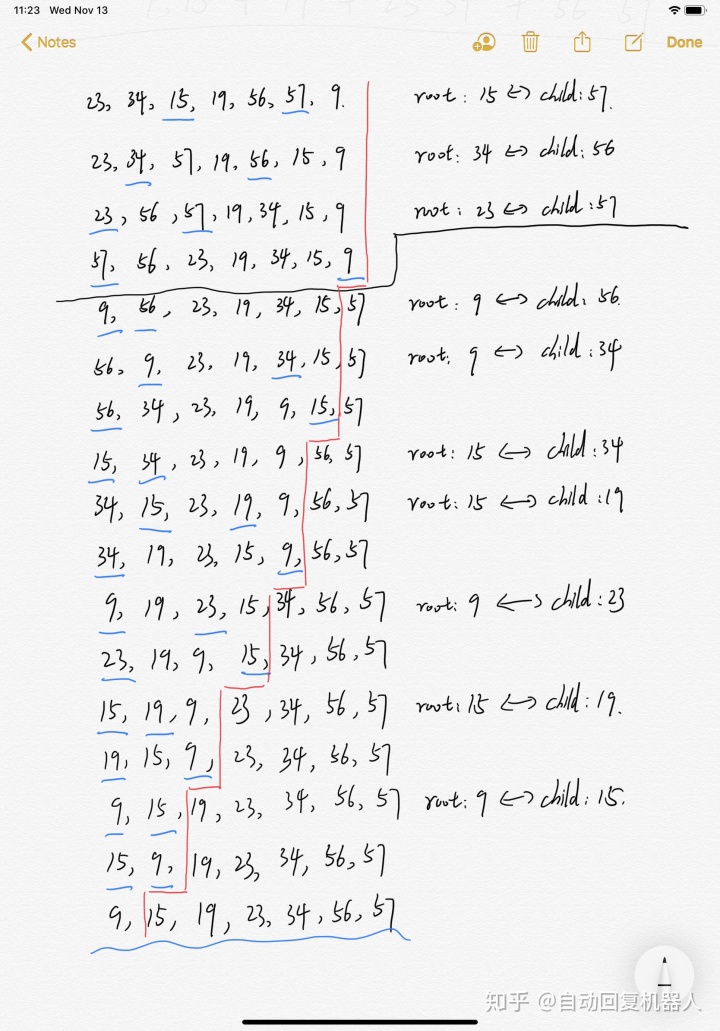 11:23 Wed Nov 13
Notes Done
23, 34, 15, 19, 56, 57, 9. root: 15 <-> child: 57.
23, 34, 57, 19, 56, 15, 9 root: 34 <-> child: 56
23, 56, 57, 19, 34, 15, 9 root: 23 <-> child: 57
57, 56, 23, 19, 34, 15, 9
9, 56, 23, 19, 34, 15, 57 root: 9 <-> child: 56.
56, 9, 23, 19, 34, 15, 57 root: 9 <-> child: 34
56, 34, 23, 19, 9, 15, 57
15, 34, 23, 19, 9, 56, 57 root: 15 <-> child: 34
34, 15, 23, 19, 9, 56, 57 root: 15 <-> child: 19
34, 19, 23, 15, 9, 56, 57
9, 19, 23, 15, 34, 56, 57 root: 9 <-> child: 23
23, 19, 9, 15, 34, 56, 57
15, 19, 9, 23, 34, 56, 57 root: 15 <-> child: 19.
19, 15, 9, 23, 34, 56, 57
9, 15, 19, 23, 34, 56, 57 root: 9 <-> child: 15.
15, 9, 19, 23, 34, 56, 57
9, 15, 19, 23, 34, 56, 57
知乎 @自动回复机器人